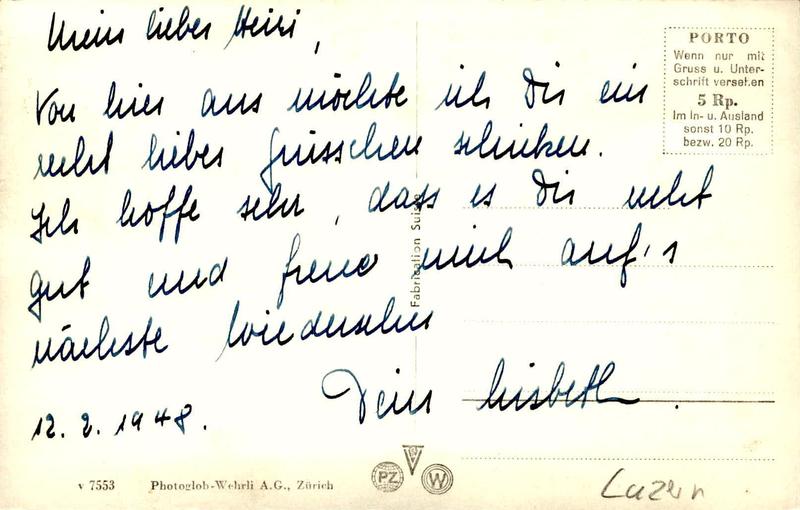 Mein lieber Heiri,
Von hier aus möchte ich Dir ein
recht liebes Grüsschen schicken.
Ich hoffe sehr, dass es Dir recht
gut und freue mich auf's
nächste Wiedersehen
Dein Lisbeth.
12. 2. 1948.
PORTO
Wenn nur mit
Gruss u. Unter-
schrift versehen
5 Rp.
Im In- u. Ausland
sonst 10 Rp.
bezw. 20 Rp.
Fabrication Suisse
v 7553 Photoglob-Wehrli A.G., Zürich
PZ W
Luzern